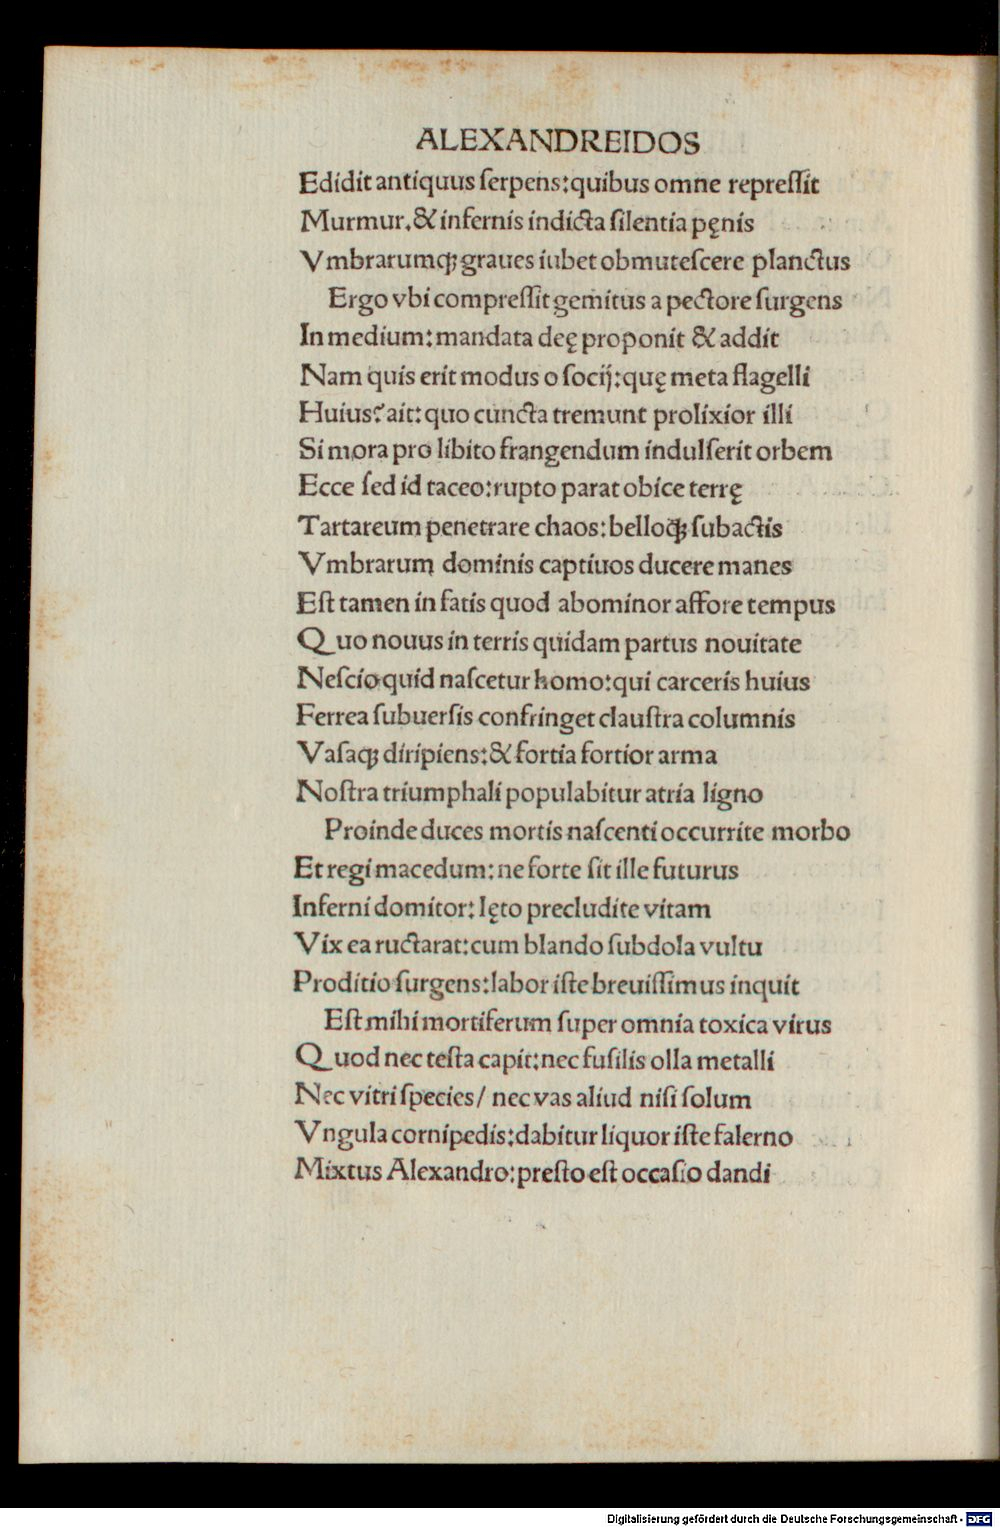 ALEXANDREIDOS
Edidit antiquus ſerpens:quibus omne repreſſit
Murmur.& infernis indicta ſilentia pęnis
Vmbrarumqꝫ graues iubet obmuteſcere planctus
Ergo vbi compreſſit gemitus a pectore ſurgens
In medium:mandata deę proponit & addit
Nam quis erit modus o ſocij:quę meta flagelli
Huius?ait:quo cuncta tremunt prolixior illi
Si mora pro libito frangendum indulſerit orbem
Ecce ſed id taceo:rupto parat obice terrę
Tartareum penetrare chaos:belloqꝫ ſubactis
Vmbrarum dominis captiuos ducere manes
Eſt tamen in fatis quod abominor affore tempus
Quo nouus in terris quidam partus nouitate
Neſcio quid naſcetur homo:qui carceris huius
Ferrea ſubuerſis confringet clauſtra columnis
Vaſaqꝫ diripiens:& fortia fortior arma
Noſtra triumphali populabitur atria ligno
Proinde duces mortis naſcenti occurrite morbo
Et regi macedum:ne forte ſit ille futurus
Inferni domitor:lęto precludite vitam
Vix ea ructarat:cum blando ſubdola vultu
Proditio ſurgens:labor iſte breuiſſimus inquit
Eſt mihi mortiferum ſuper omnia toxica virus
Quod nec teſta capit:nec fuſilis olla metalli
Nec vitri ſpecies/ nec vas aliud niſi ſolum
Vngula cornipedis:dabitur liquor iſte falerno
Mixtus Alexandro:preſto eſt occaſio dandi
Digitalisierung gefördert durch die Deutsche Forschungsgemeinschaft - DFG